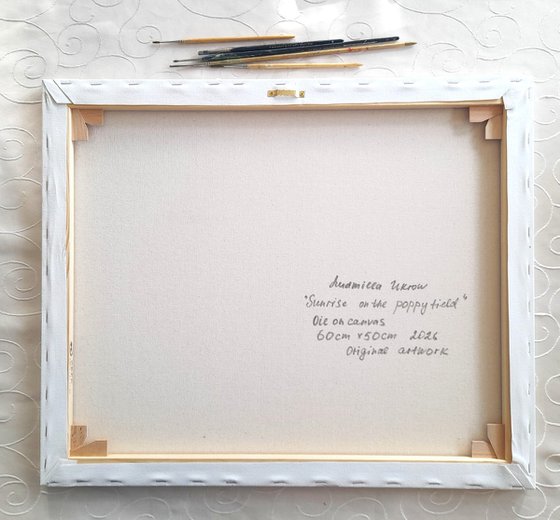 Ludmilla Ukrow
"Sunrise on the poppy field"
Oil on canvas
60cm x 50cm 2026
Original artwork